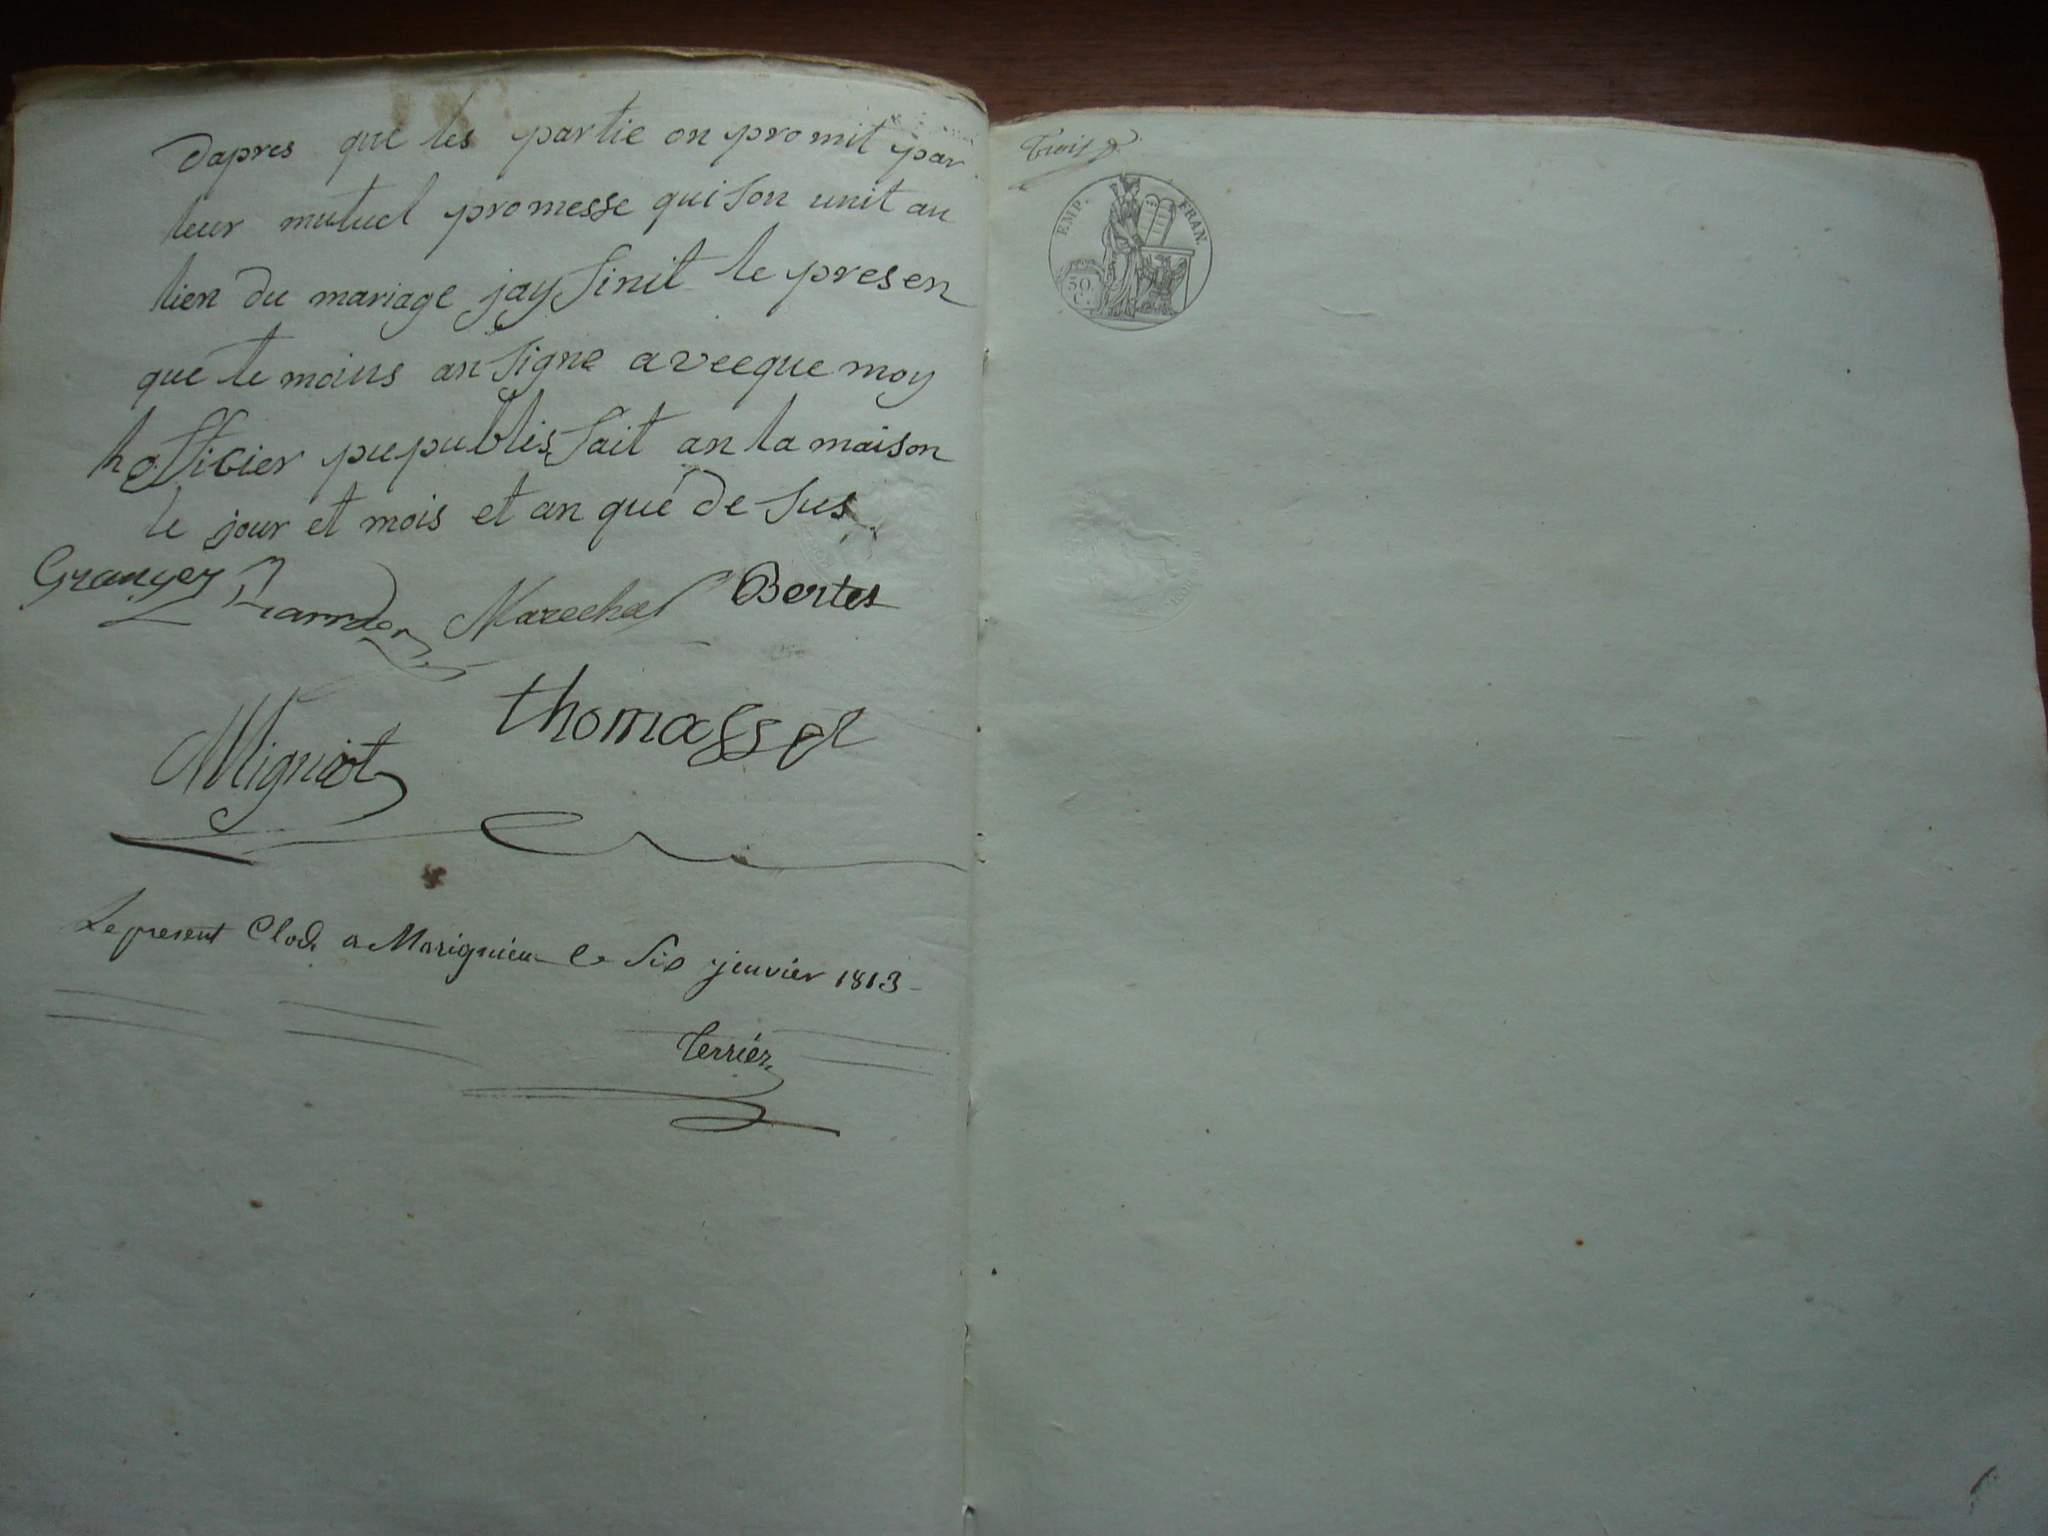 dapres que les partie on promit par
leur mutuel promesse qui son unit au
lien du mariage jay finit le presen
que te moins an signe aveeque moy
hofficier pupublis fait an la maison
le jour et mois et an que de sus
Granger Marechal Bertet
thomasset
Migniot
Le present Clos a Marignieu le six jenvier 1813
Terrier
Trois
EMP. FRAN.
50 C.